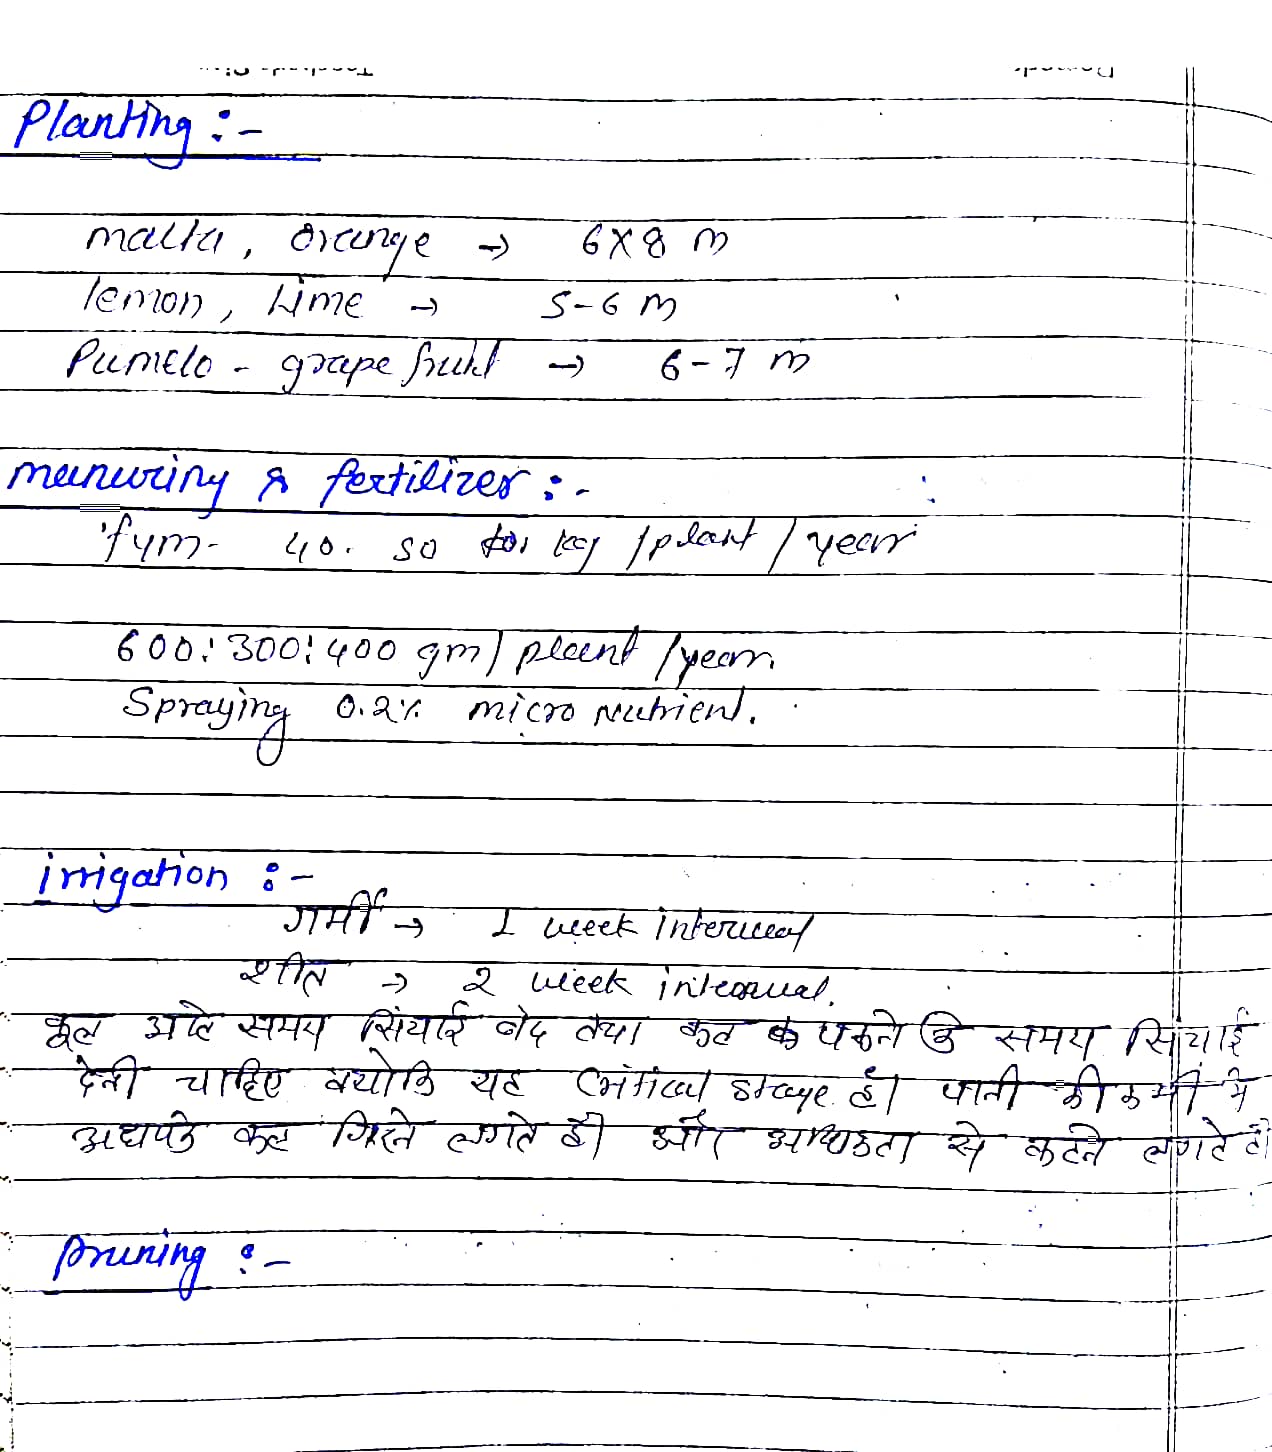 Planting :-
malta, orange → 6×8 m
lemon, lime → 5-6 m
Pumelo - grape fruit → 6-7 m
manuring & fertilizer :-
fym- 40. 50 kg /plant / year
600:300:400 gm / plant / year
Spraying 0.2% micro nutrient.
irrigation :-
गर्मी → 1 week interval
शीत → 2 week interval.
फूल आते समय सिंचाई बंद तथा फल के पकने के समय सिंचाई
देनी चाहिए क्योंकि यह Critical stage है। पानी की कमी से
अधपके फल गिरने लगते हैं। और अधिकता से फटने लगते हैं
pruning :-